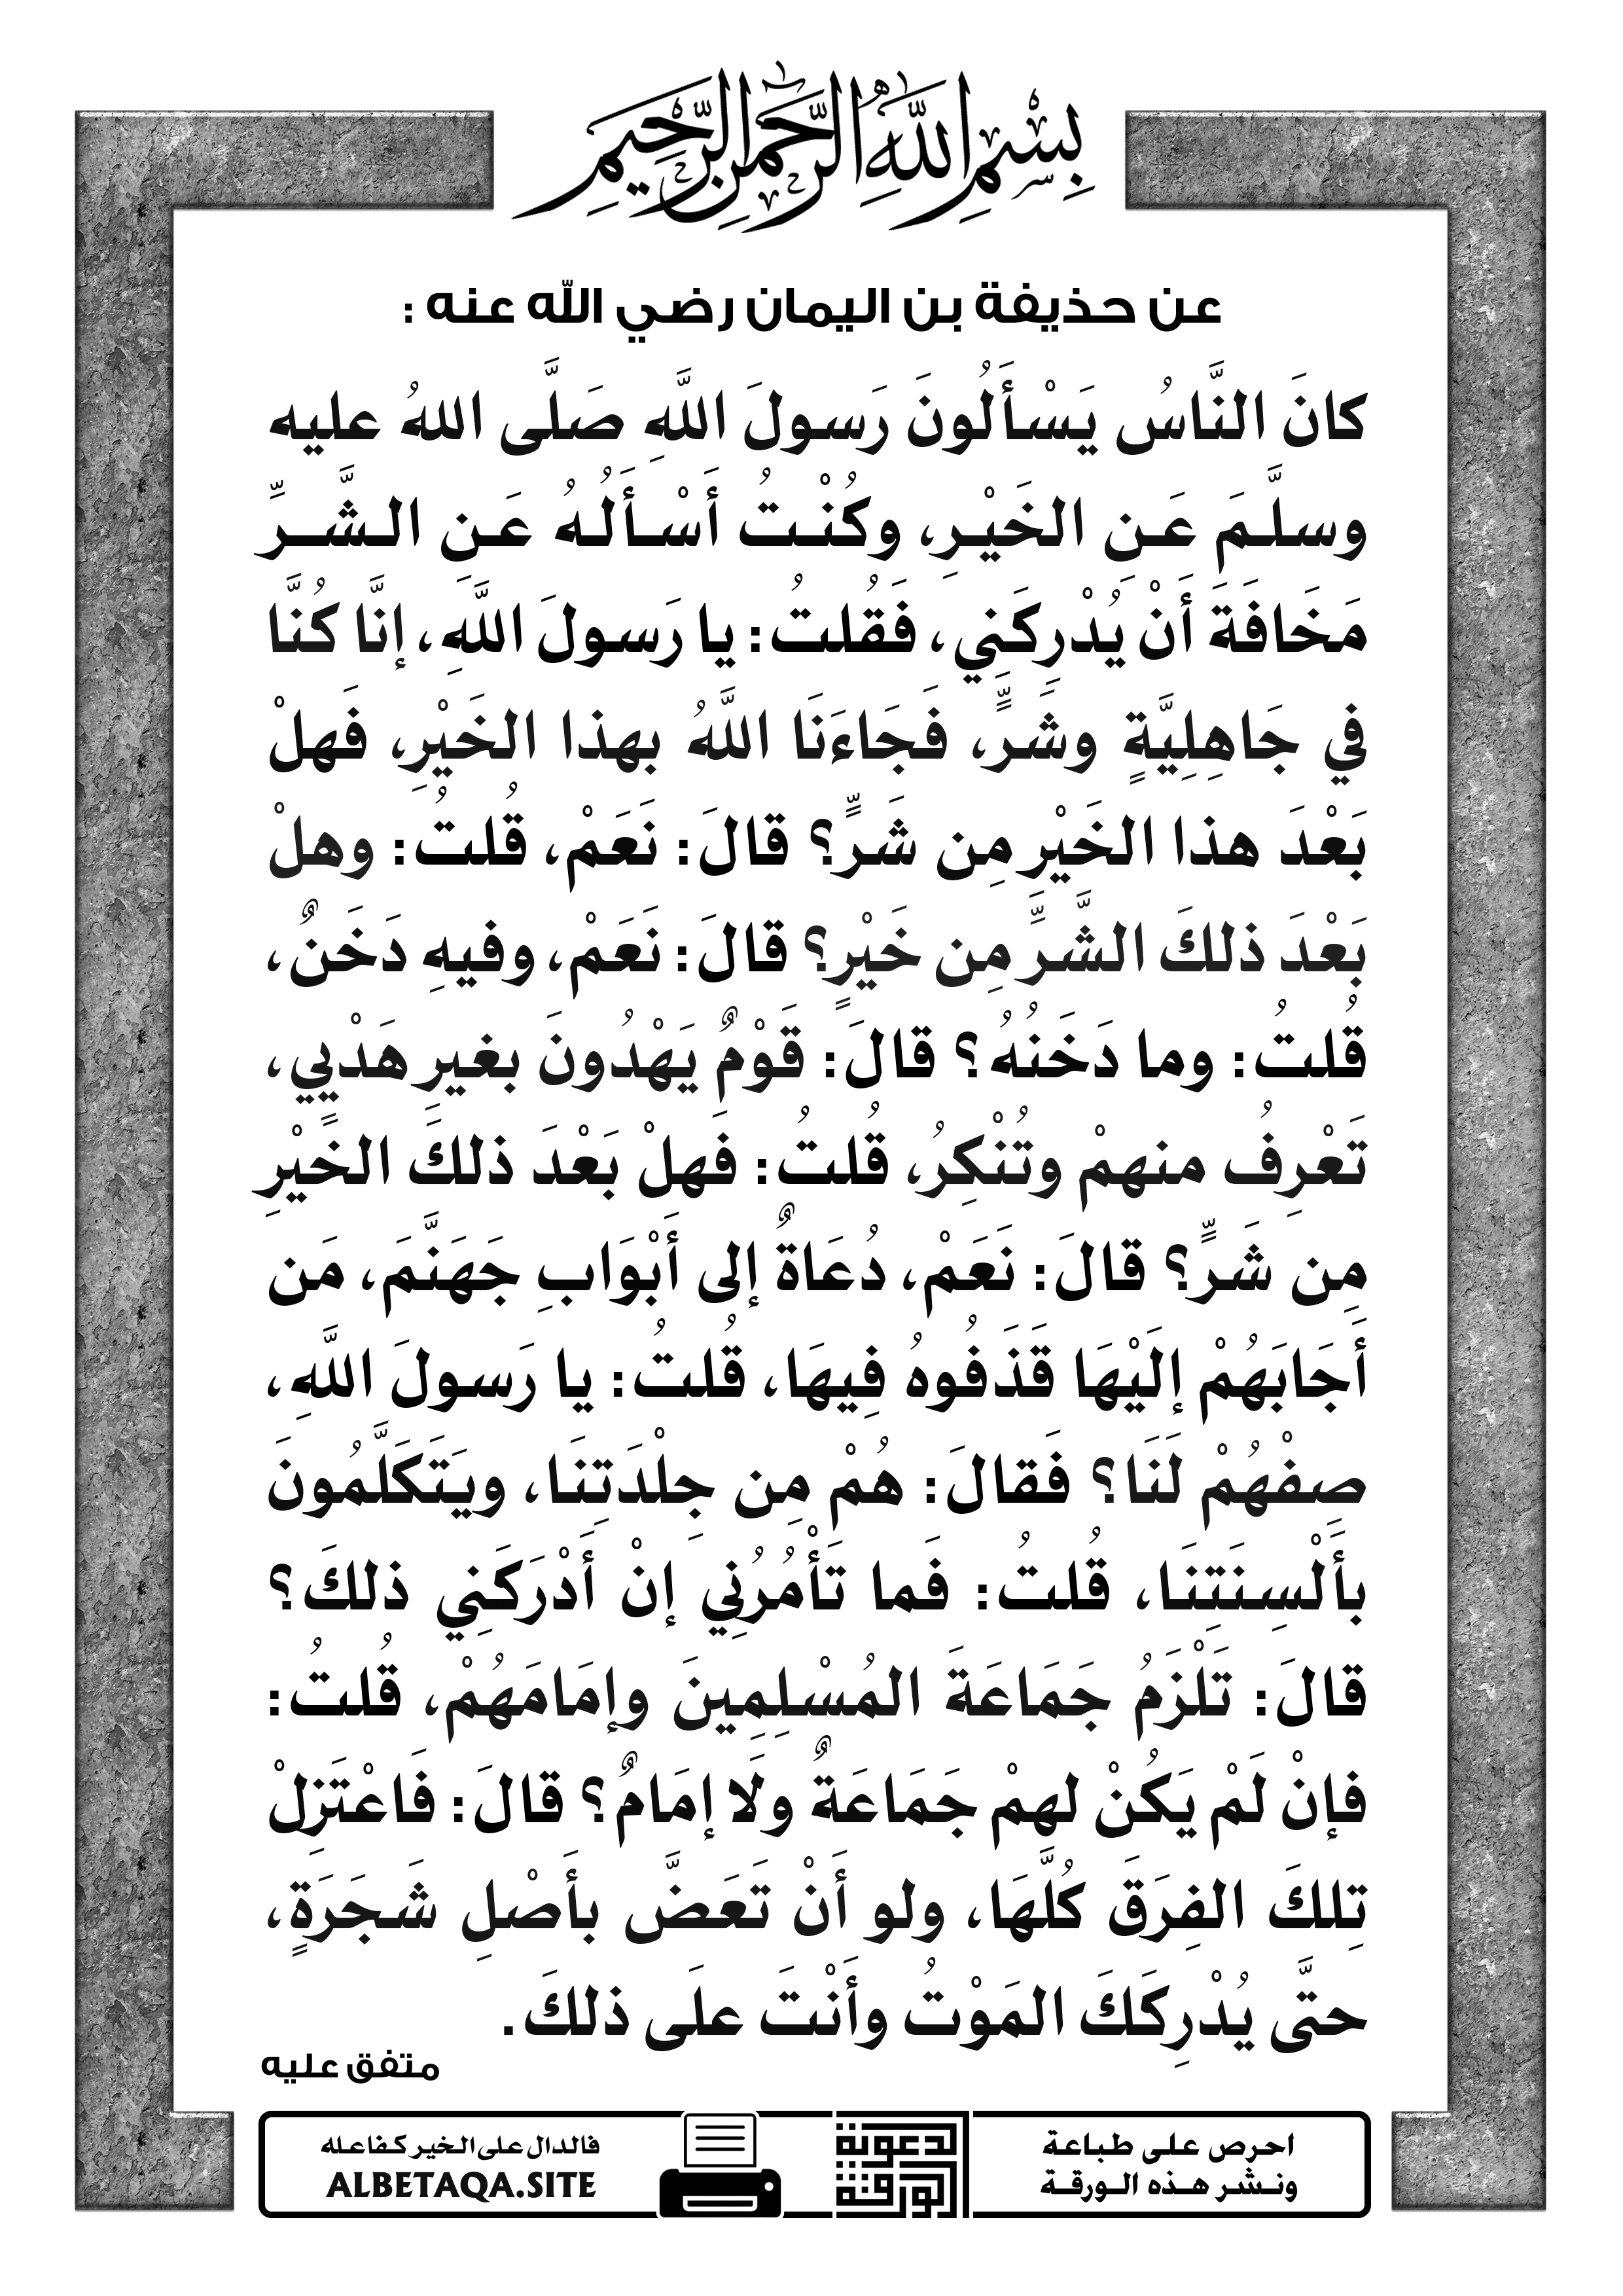 بِسْمِ اللَّهِ الرَّحْمَٰنِ الرَّحِيمِ
عن حذيفة بن اليمان رضي الله عنه :
كانَ النَّاسُ يَسْأَلُونَ رَسولَ اللَّهِ صَلَّى اللهُ عليه
وسلَّمَ عَنِ الخَيْرِ، وكُنْتُ أَسْأَلُهُ عَنِ الشَّرِّ
مَخَافَةَ أَنْ يُدْرِكَنِي، فَقُلتُ: يا رَسولَ اللَّهِ، إنَّا كُنَّا
في جَاهِلِيَّةٍ وشَرٍّ، فَجَاءَنَا اللَّهُ بهذا الخَيْرِ، فَهلْ
بَعْدَ هذا الخَيْرِ مِن شَرٍّ؟ قالَ: نَعَمْ، قُلتُ: وهلْ
بَعْدَ ذلكَ الشَّرِّ مِن خَيْرٍ؟ قالَ: نَعَمْ، وفيهِ دَخَنٌ،
قُلتُ: وما دَخَنُهُ؟ قالَ: قَوْمٌ يَهْدُونَ بغيرِ هَدْيِي،
تَعْرِفُ منهمْ وتُنْكِرُ، قُلتُ: فَهلْ بَعْدَ ذلكَ الخَيْرِ
مِن شَرٍّ؟ قالَ: نَعَمْ، دُعَاةٌ إلى أَبْوَابِ جَهَنَّمَ، مَن
أَجَابَهُمْ إلَيْهَا قَذَفُوهُ فِيهَا، قُلتُ: يا رَسولَ اللَّهِ،
صِفْهُمْ لَنَا؟ فَقالَ: هُمْ مِن جِلْدَتِنَا، ويَتَكَلَّمُونَ
بأَلْسِنَتِنَا، قُلتُ: فَما تَأْمُرُنِي إنْ أَدْرَكَنِي ذلكَ؟
قالَ: تَلْزَمُ جَمَاعَةَ المُسْلِمِينَ وإمَامَهُمْ، قُلتُ:
فإنْ لَمْ يَكُنْ لهمْ جَمَاعَةٌ ولَا إمَامٌ؟ قالَ: فَاعْتَزِلْ
تِلكَ الفِرَقَ كُلَّهَا، ولو أَنْ تَعَضَّ بأَصْلِ شَجَرَةٍ،
حتَّى يُدْرِكَكَ المَوْتُ وأَنْتَ علَى ذلكَ.
متفق عليه
احرص على طباعة
ونشر هذه الورقة
الورقة
الدعوية
فالدال على الخير كفاعله
ALBETAQA.SITE